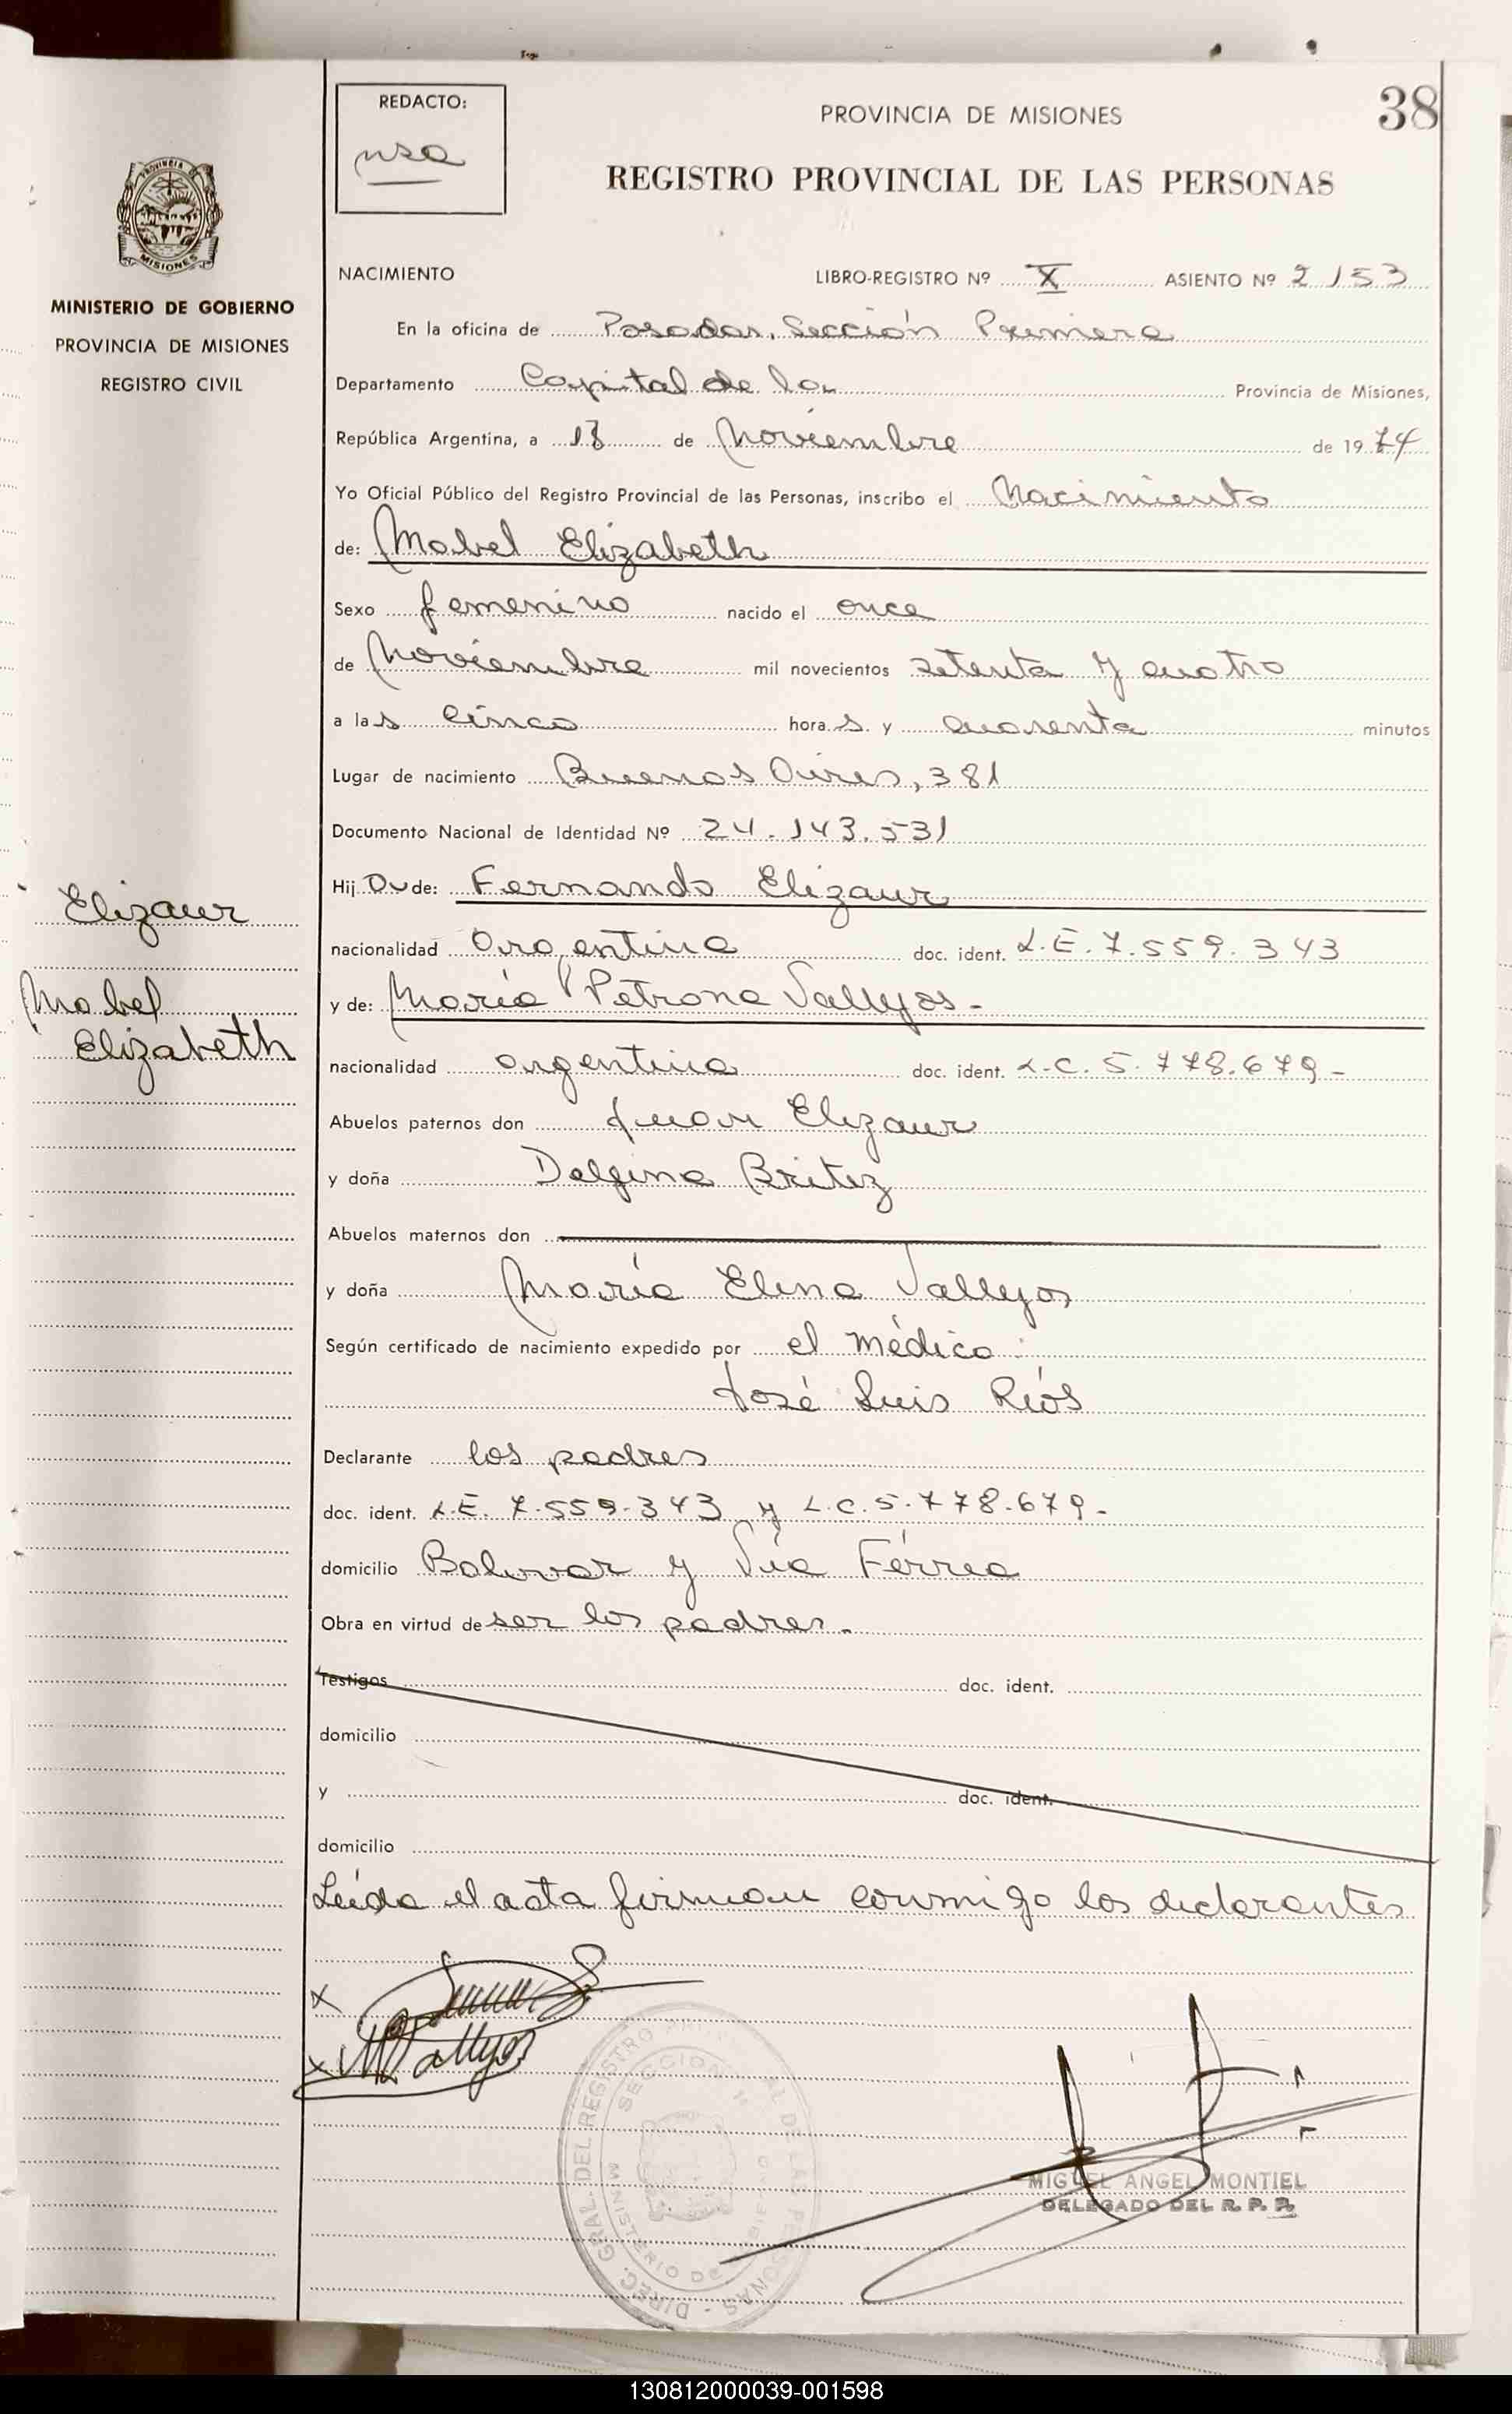 38
REDACTO:
PROVINCIA DE MISIONES
REGISTRO PROVINCIAL DE LAS PERSONAS
PROVINCIA DE
MISIONES
MINISTERIO DE GOBIERNO
PROVINCIA DE MISIONES
REGISTRO CIVIL
NACIMIENTO LIBRO-REGISTRO Nº X ASIENTO Nº 2153
En la oficina de Posadas, Sección Primera
Departamento Capital de la Provincia de Misiones,
República Argentina, a 18 de Noviembre de 1974
Yo Oficial Público del Registro Provincial de las Personas, inscribo el Nacimiento
de: Mabel Elizabeth
Sexo femenino nacido el once
de Noviembre mil novecientos setenta y cuatro
a las cinco horas y cuarenta minutos
Lugar de nacimiento Buenos Aires, 381
Documento Nacional de Identidad Nº 24.143.531
Elizaur
Mabel
Elizabeth
Hij de: Fernando Elizaur
nacionalidad Argentina doc. ident. L.E. 7.559.343
y de: María Petrona Vallejos -
nacionalidad argentina doc. ident. L.C. 5.778.679 -
Abuelos paternos don Juan Elizaur
y doña Delfina Britez
Abuelos maternos don
y doña María Elena Vallejos
Según certificado de nacimiento expedido por el médico
José Luis Ríos
Declarante los padres
doc. ident. L.E. 7.559.343 y L.C. 5.778.679 -
domicilio Bolivar y Vía Férrea
Obra en virtud de ser los padres -
Testigos doc. ident.
domicilio
y doc. ident.
domicilio
Leída el acta firman conmigo los declarantes
x
x M Vallejos
DIREC. GRAL. DEL REGISTRO AL DE LAS PERSONAS
SECCION 1ª
MINISTERIO DE GOBIERNO
MIGUEL ANGEL MONTIEL
DELEGADO DEL R. P. P.
130812000039-001598